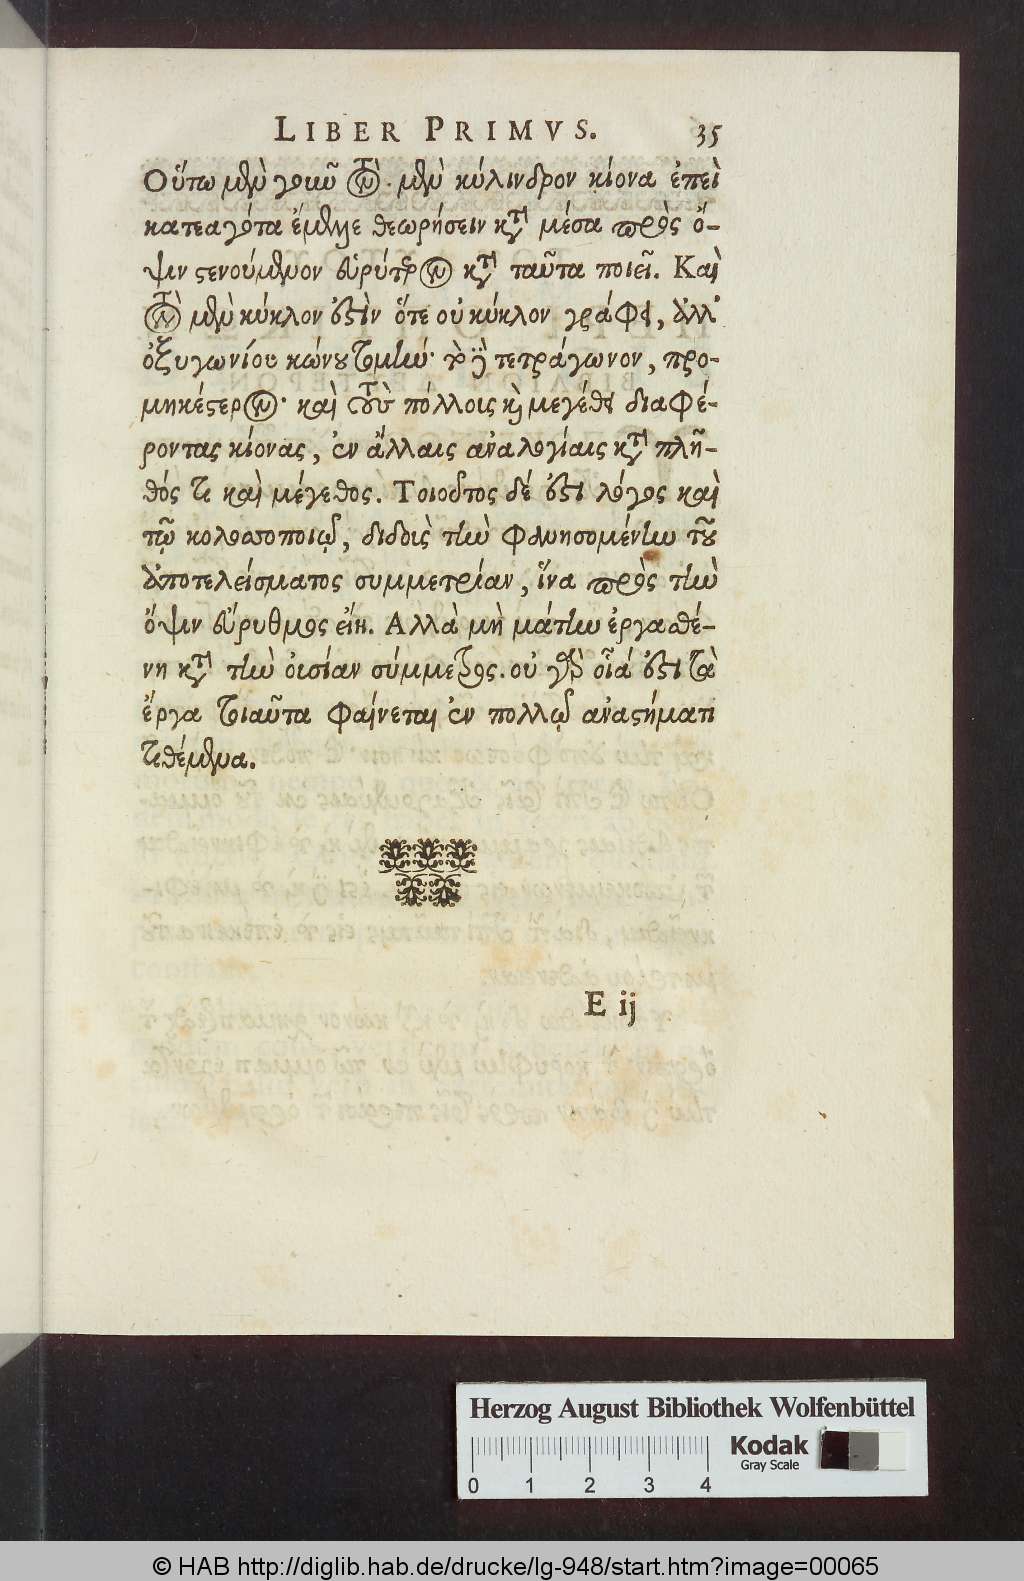 LIBER PRIMVS. 35
Οὕτω μὲν γοῦν τὸν μὲν κύλινδρον κίονα ἐπεὶ
κατεαγότα ἔμελλε θεωρήσειν κατὰ μέσα πρὸς ὄ-
ψιν στενούμενον εὐρύτερον κατὰ ταῦτα ποιεῖ. Καὶ
τὸν μὲν κύκλον ἐστὶν ὅτε οὐ κύκλον γράφει, ἀλλ'
ὀξυγωνίου κώνου τομήν· τὸ δὲ τετράγωνον, προ-
μηκέστερον· καὶ τοὺς πόλλοις καὶ μεγέθει διαφέ-
ροντας κίονας, ἐν ἄλλαις ἀναλογίαις κατὰ πλῆ-
θός τε καὶ μέγεθος. Τοιοῦτος δέ ἐστι λόγος καὶ
τῷ κολοσσοποιῷ, διδοὺς τὴν φανησομένην τοῦ
ἀποτελείσματος συμμετρίαν, ἵνα πρὸς τὴν
ὄψιν εὔρυθμος εἴη. Αλλὰ μὴ μάτην ἐργασθέ-
νη κατὰ τὴν οὐσίαν σύμμετρος. οὐ γὰρ οἷά ἐστι τὰ
ἔργα τοιαῦτα φαίνεται ἐν πολλῷ ἀναστήματι
τεθέμενα.
E ij
Herzog August Bibliothek Wolfenbüttel
Kodak
Gray Scale
0 1 2 3 4
© HAB http://diglib.hab.de/drucke/lg-948/start.htm?image=00065